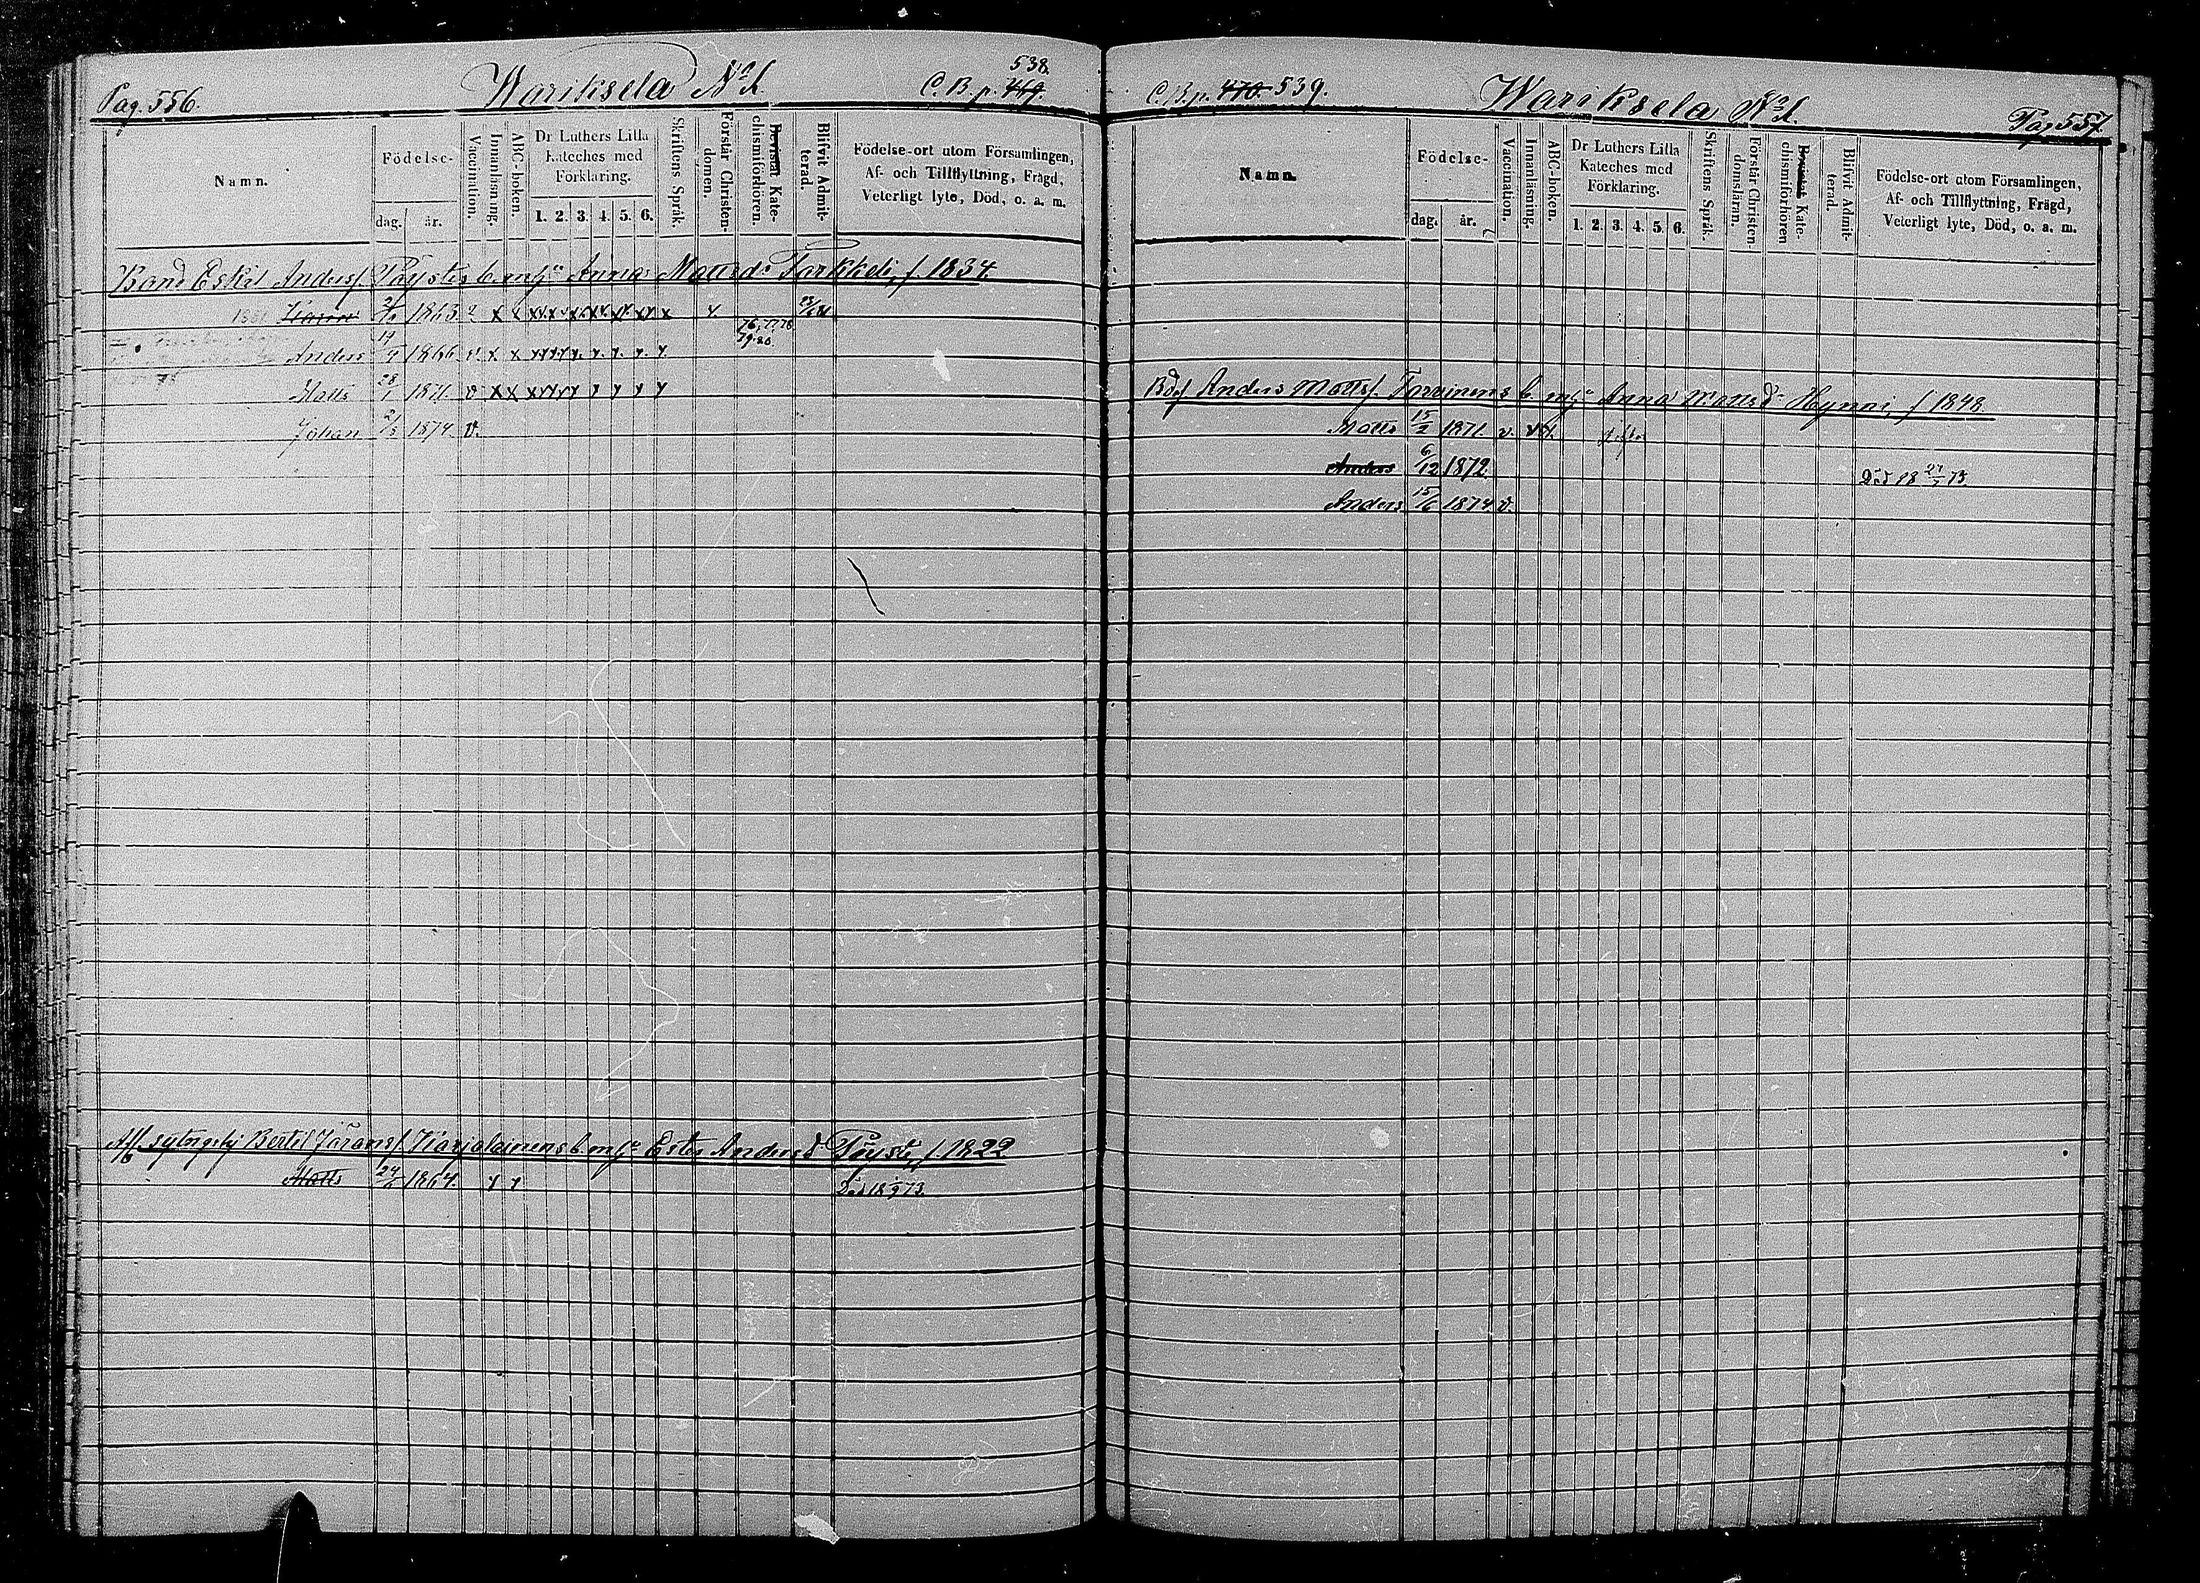 Pag. 556. Wariksela № 1. C. B. p. 469. 538.
Namn.
Födelse-
dag. år.
Vaccination.
Innanläsning.
ABC-boken.
Dr Luthers Lilla Kateches med Förklaring.
1. 2. 3. 4. 5. 6.
Skriftens Språk.
Förstår Christendomen.
Bevistat Katechismiförhören.
Blifvit Admitterad.
Födelse-ort utom Församlingen,
Af- och Tillflyttning, Frägd,
Veterligt lyte, Död, o. a. m.
Bond Eskil Anderss. Pöystis b. m. hu Anna Mattsdr Tarkkeli, f 1834.
1863
76, 77 78
79. 80.
Anders 19/4 1866 v. x x
Matts 28/1 1871. v x x
Johan 1874. v.
sytngshj Bertel Göranss. Karjalainens b. m. hu Ester Andersdr Pöysti, f 1822
Matts 24/6 1867. x x Död 18 73.
C. B. p. 470. 539. Wariksela № 1. Pag 557.
Namn.
Födelse-
dag. år.
Vaccination.
Innanläsning.
ABC-boken.
Dr Luthers Lilla Kateches med Förklaring.
1. 2. 3. 4. 5. 6.
Skriftens Språk.
Förstår Christendomsläran.
Bevistat Katechismiförhören
Blifvit Admitterad.
Födelse-ort utom Församlingen,
Af- och Tillflyttning, Frägd,
Veterligt lyte, Död, o. a. m.
Anders Mattss. Tarvainens b. m. hu Anna Mattsdr Hynni, f 1848
Matts 15/2 1871. v.
Anders 6/12 1872. Död 18 73.
Anders 15/6 1874 v.